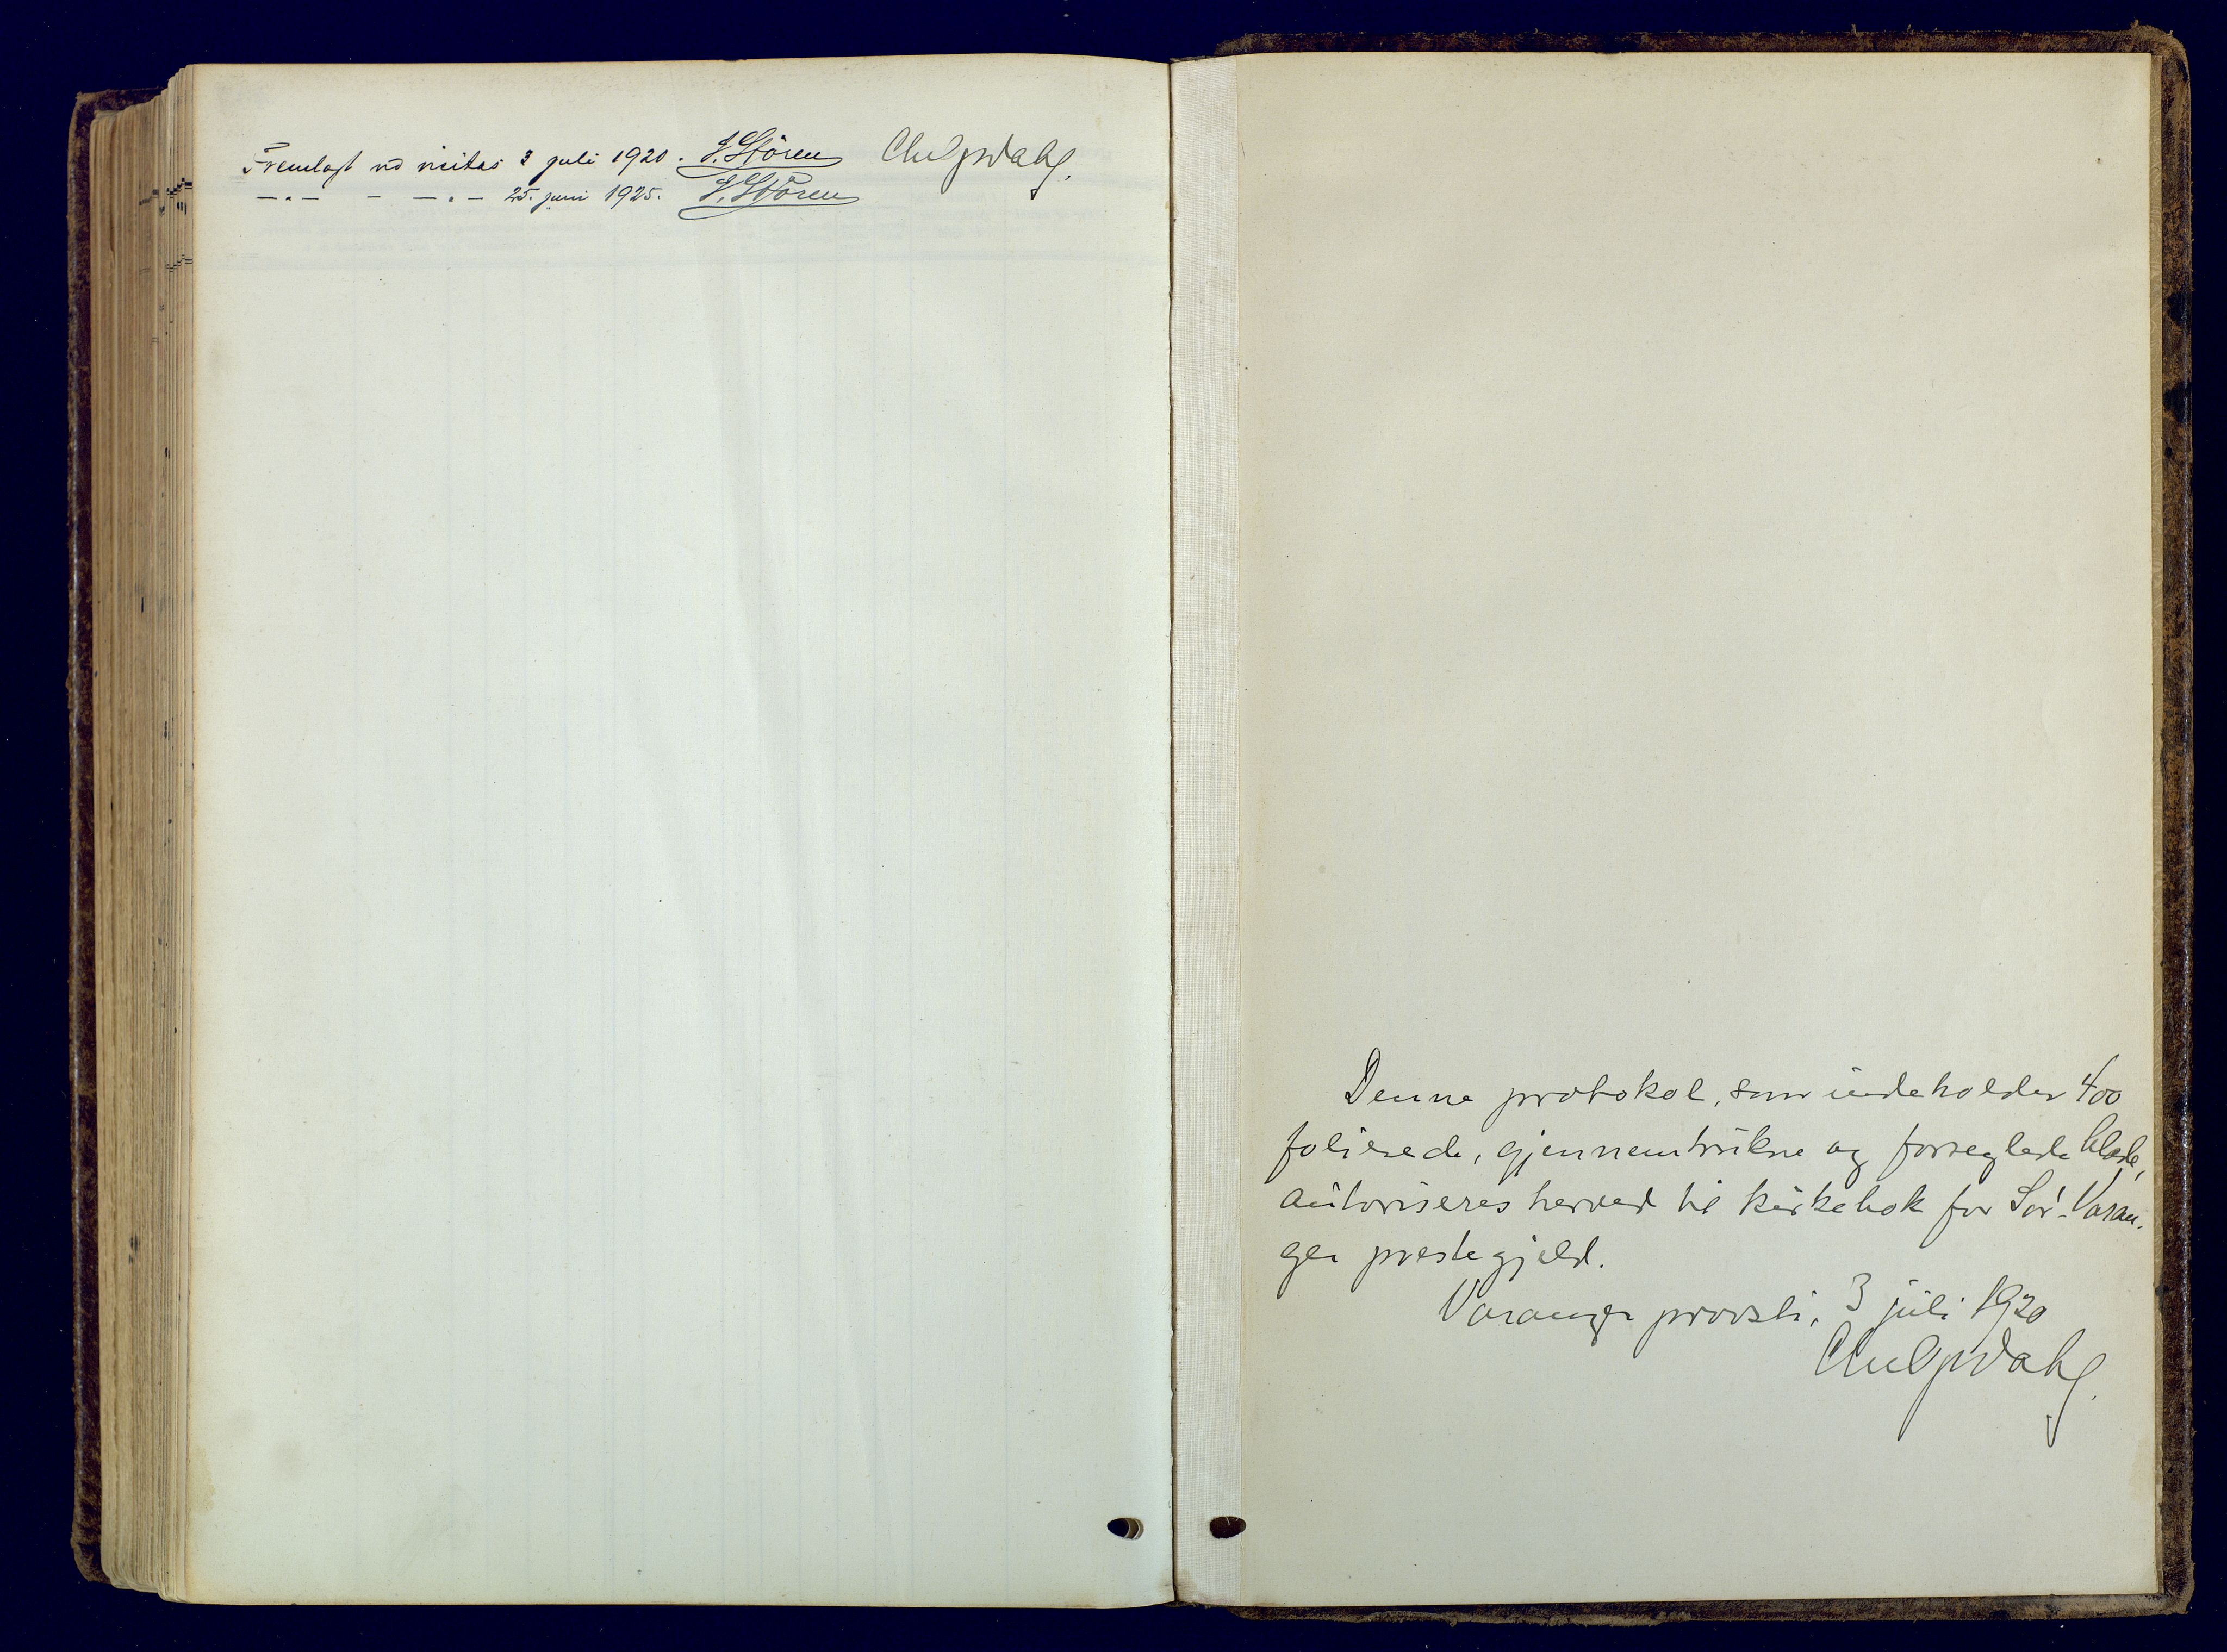 Fremlagt ved visitas 3 juli 1920. J. Støren
— " — - — " — 25. juni 1925. J. Støren
Denne protokol, som indeholder 400
folierede, gjennemtrukne og forseglede blade,
autoriseres herved til kirkebok for Sør-Varan-
ger prestegjeld.
Varanger provsti, 3 juli 1920